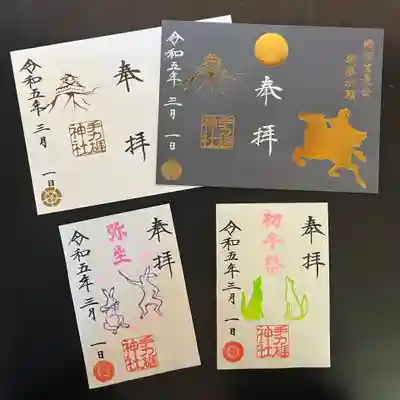 奉拝
令和五年三月一日
手力雄神社
奉拝
令和五年三月一日
手力雄神社
弥生
奉拝
令和五年三月一日
手力雄神社
初午祭
奉拝
令和五年三月一日
手力雄神社